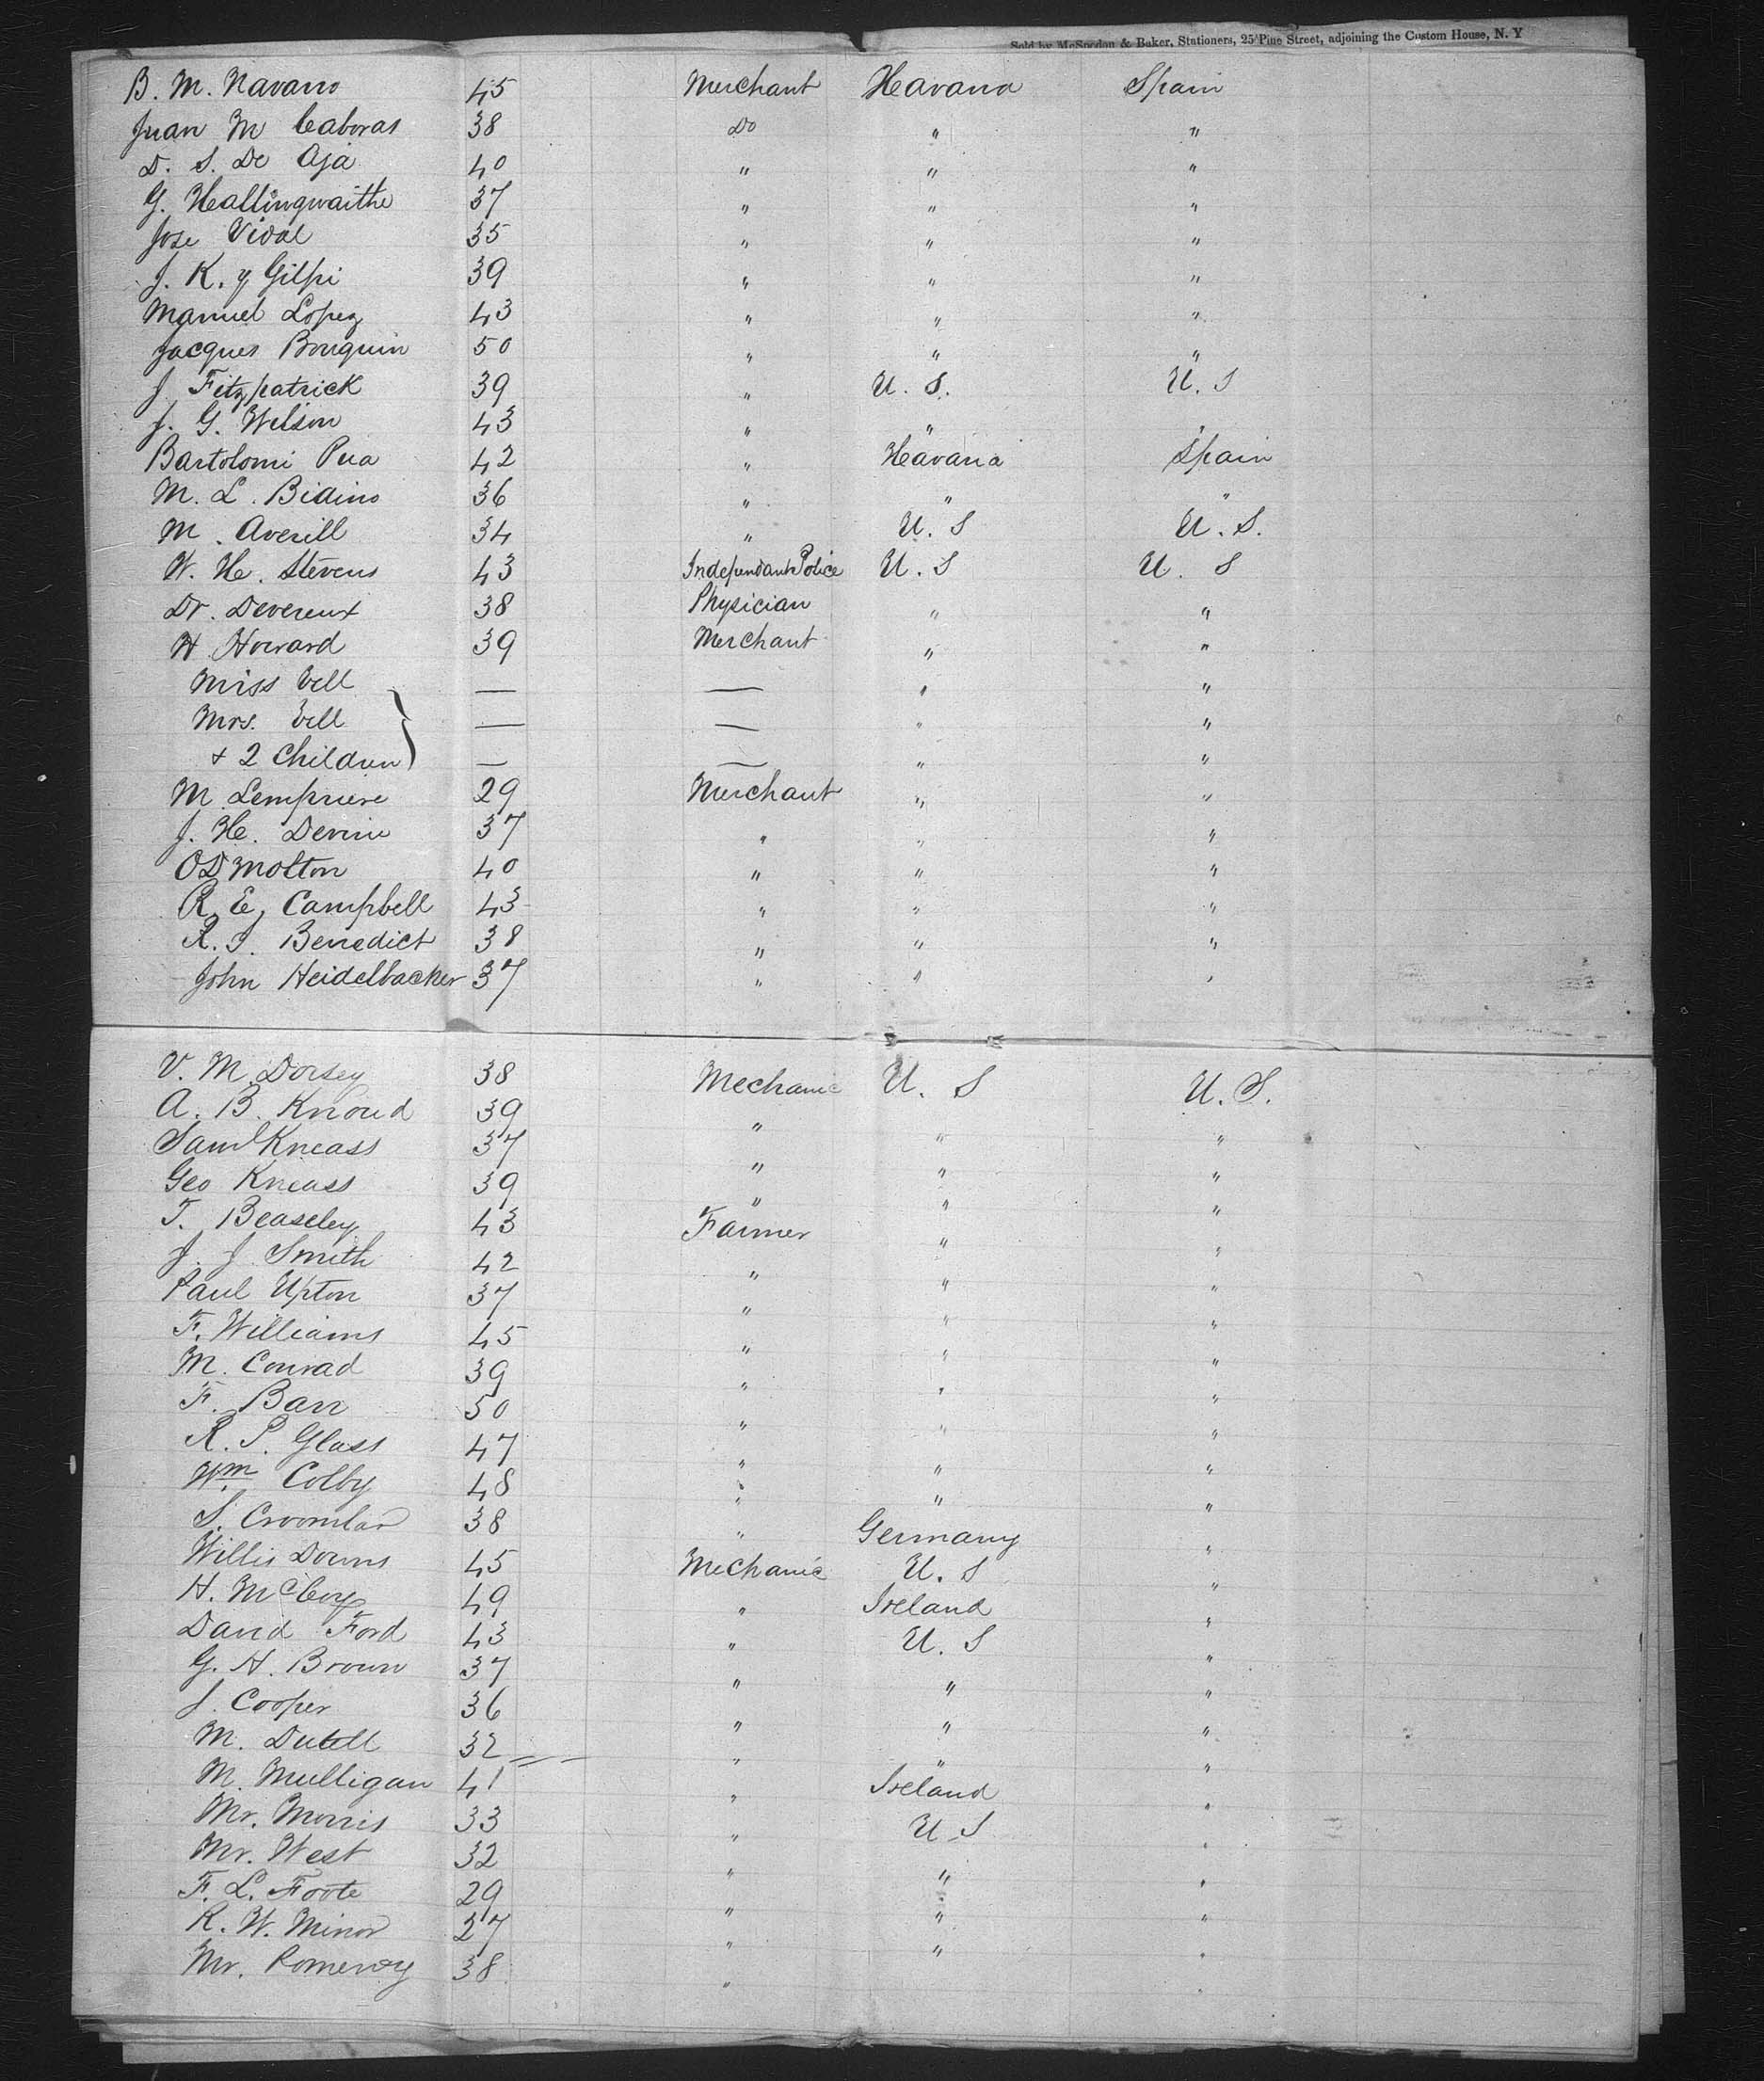 Sold by McSpedon & Baker, Stationers, 25 Pine Street, adjoining the Custom House, N. Y
B. M. Navarro 45 Merchant Havana Spain
Juan M Caboras 38 Do " "
D. S. De Aja 40 " " "
G. Hallingwaithe 37 " " "
Jose Vidal 35 " " "
J. K. y Gilpi 39 " " "
Manuel Lopez 43 " " "
Jacques Bouquin 50 " " "
J Fitzpatrick 39 " U. S. U. S
J. G. Wilson 43 " " "
Bartolomi Pua 42 " Havana Spain
M. L. Bidino 36 " " "
M. Averill 34 " U. S U. S.
W. H. Stevens 43 Independant Police U. S U. S
Dr. Devereux 38 Physician " "
H Howard 39 Merchant " "
Miss Vell — — " "
Mrs. Vell — — " "
+ 2 Children — — " "
M Lempriere 29 Merchant " "
J. H. Devine 37 " " "
O D Molton 40 " " "
R. E. Campbell 43 " " "
R. J. Benedict 38 " " "
John Heidelbacker 37 " " "
V. M. Dorsey 38 Mechanic U. S U. S.
A. B. Knoud 39 " " "
Saml Kneass 37 " " "
Geo Kneass 39 " " "
T. Beaseley 43 Farmer " "
J. J Smith 42 " " "
Paul Upton 37 " " "
F. Williams 45 " " "
M. Conrad 39 " " "
F. Barr 50 " " "
R. P. Glass 47 " " "
Wm Colby 48 " " "
S. 38 " Germany "
Willis Downs 45 Mechanic U. S "
H. McCoy 49 " Ireland "
David Ford 43 " U. S "
G. H. Brown 37 " " "
J. Cooper 36 " " "
M. Dutell 32 " " "
M. Mulligan 41 " Ireland "
Mr. Morris 33 " U. S "
Mr. West 32 " " "
F. L. Foote 29 " " "
R. W. Minor 27 " " "
Mr. Pomeroy 38 " "